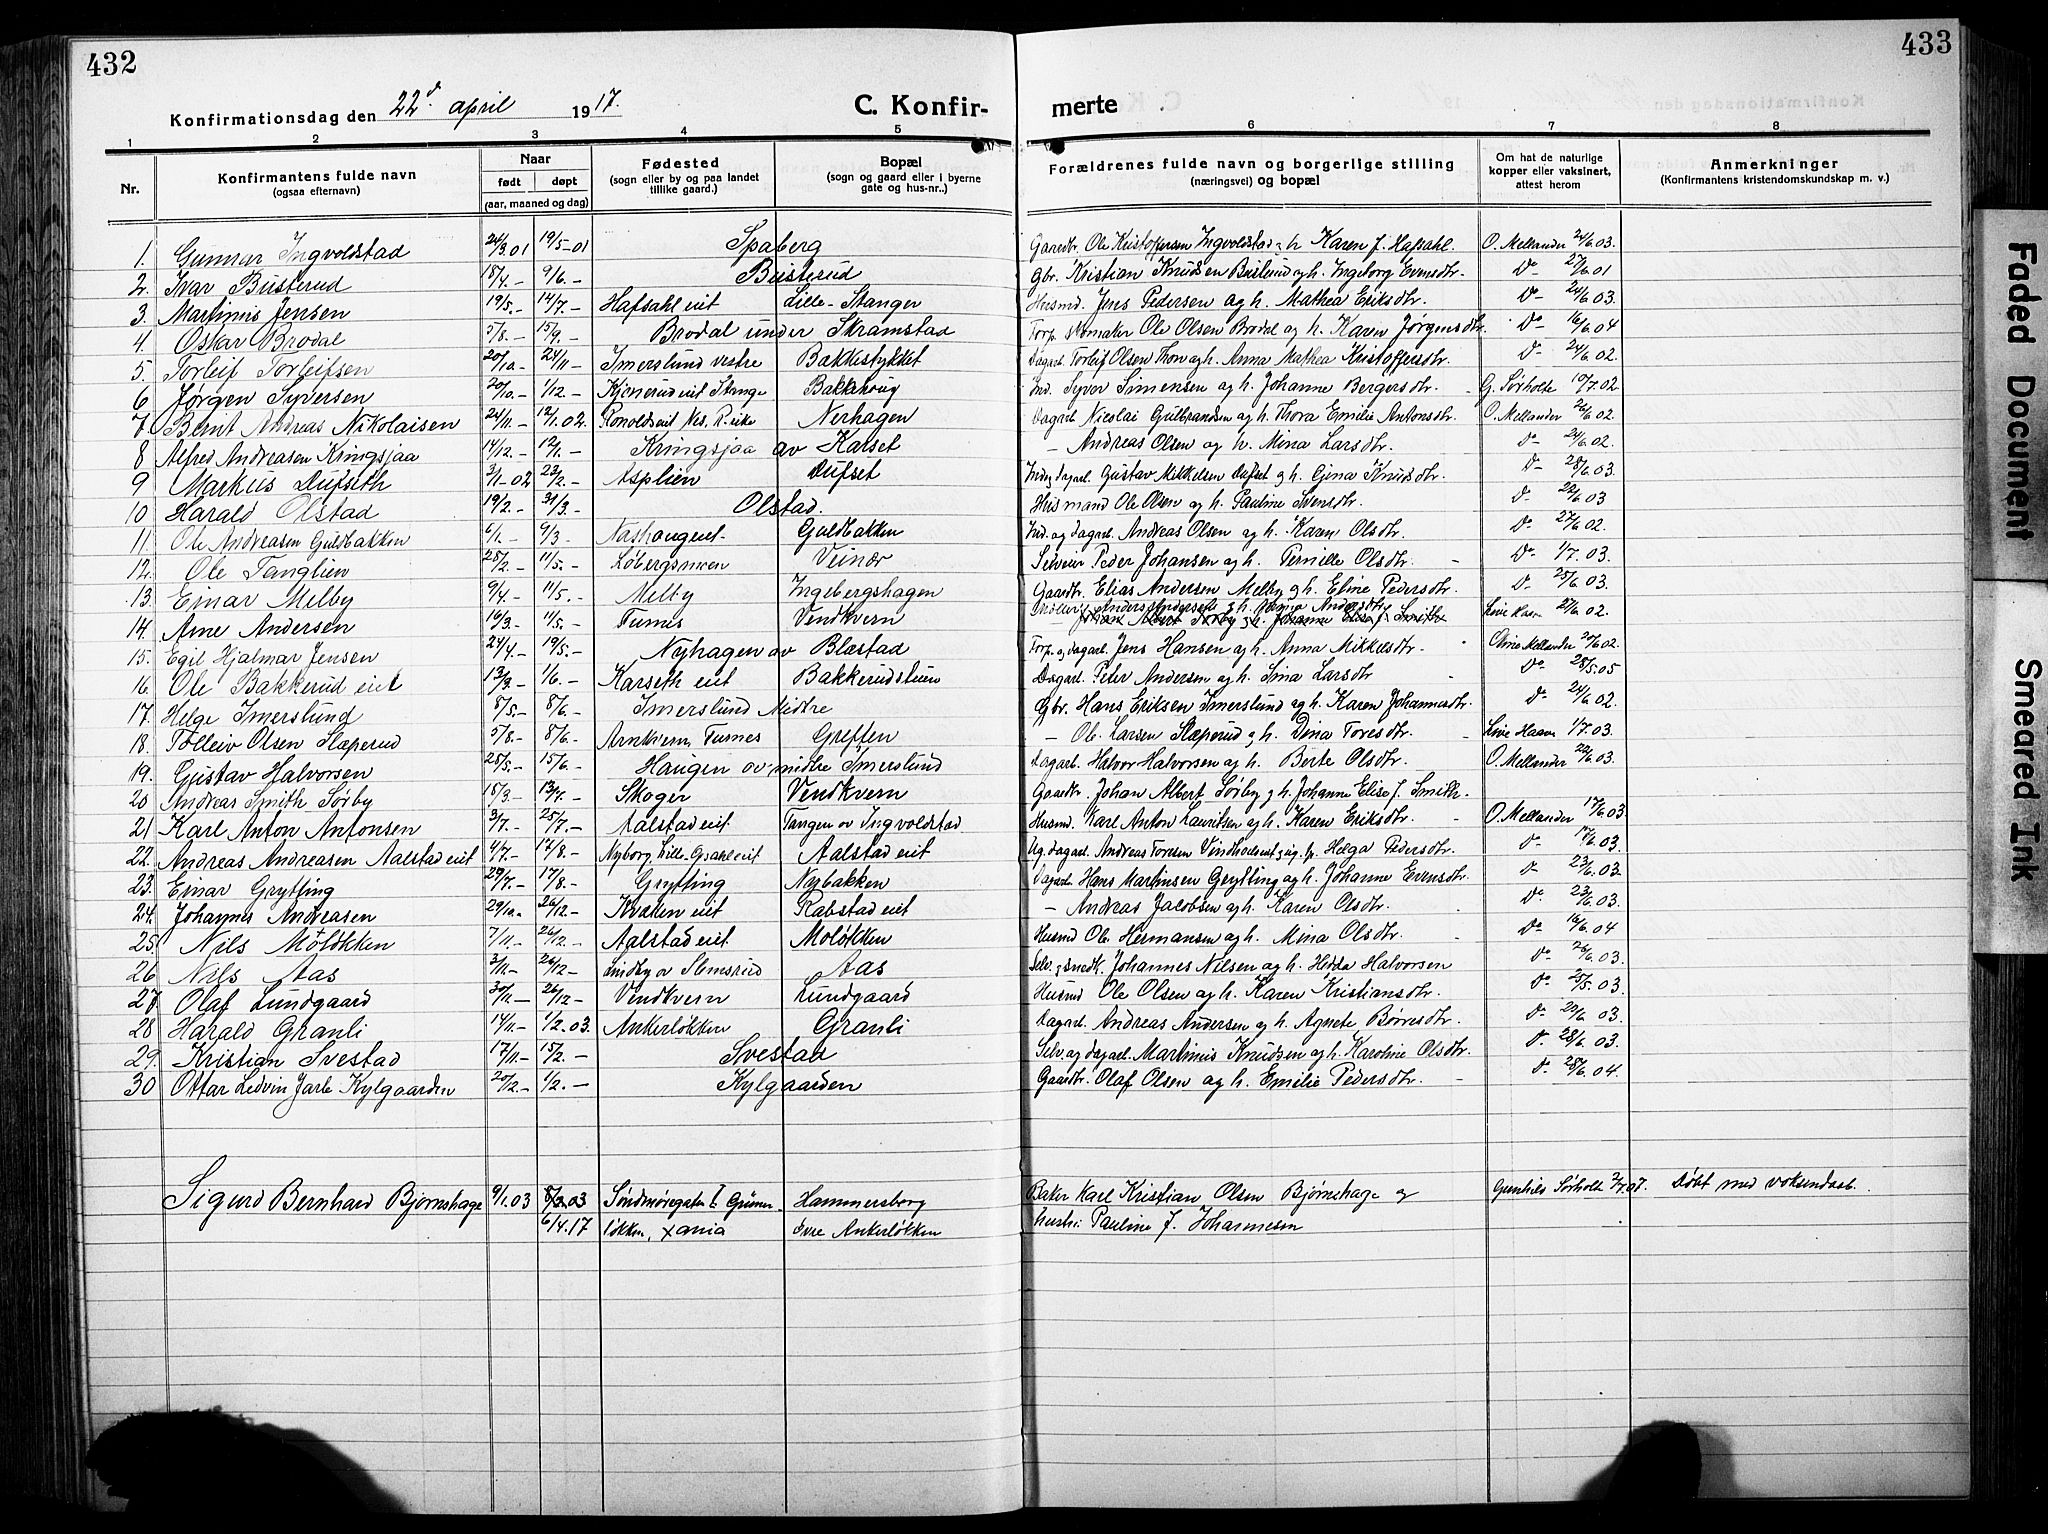 432
433
Konfirmationsdag den 22d. april 1917.
C. Konfir-
merte
1 2 3 4 5 6 7 8
Nr.
Konfirmantens fulde navn
(ogsaa efternavn)
Naar
født døpt
(aar, maaned og dag)
Fødested
(sogn eller by og paa landet
tillike gaard.)
Bopæl
(sogn og gaard eller i byerne
gate og hus-nr..)
Forældrenes fulde navn og borgerlige stilling
(næringsvei) og bopæl
Om hat de naturlige
kopper eller vaksinert,
attest herom
Anmerkninger
(Konfirmantens kristendomskundskap m. v.)
1. Gunnar Ingvoldstad 24/3.01 19/5-01 Spaberg Gaardbr. Ole Kristoffersen Ingvoldstad - h. Karen f. Hafsahl. O. Mellander 24/6.03.
2. Ivar Busterud 18/4.- 9/6.- Busterud Gbr. Kristian Knudsen Busterud og h. Ingeborg Evensdtr. Do- 27/6.01
3. Martinus Jensen 19/5.- 14/7.- Hafsahl eit Lille-Stanger Husmd. Jens Pedersen og h. Mathea Eriksdtr. Do- 24/6.03.
4. Oskar Brodal 5/8.- 15/9.- Brodal under Skramstad Torp. skomaker Ole Olsen Brodal og h. Karen Jørgensdtr. Do- 16/6.04
5. Torleif Torleifsen 20/10.- 24/11- Imerslund vestre Bakkestykket Dagarb. Torleif Olsen Thon og h. Anna Mathea Kristoffersdtr. Do- 24/6.02.
6 Jørgen Syversen 20/10.- 1/12.- Kjernerud eit Stange Bakkhaug Ind. Syver Simensen og h. Johanne Bergersdtr. G. Sørholte 19/7.02
7. Bernt Andreas Nikolaisen 24/11.- 12/1.02. Nerhagen Dagarb. Nicolai Gulbrandsen og h. Thora Emilie Antonsdtr. O. Mellander 26/6.02.
8 Alfred Andreasen Kringsjaa 14/12.- 12/1.- Kringsjaa av Karset - Andreas Olsen og h. Mina Larsdtr. Do- 24/6.02.
9 Markus Dufseth 3/1-02 23/2.- Asplien Dufset Ind. og dagarb. Gustav Mikkelsen Dufset og h. Gina Knudsdtr. Do- 28/6.03.
10 Harald Olstad 19/2.- 31/3.- Olstad. Husmand Ole Olsen og h. Pauline Svensdtr. Do- 22/6.03
11. Ole Andreasen Guldbakken 6/1.- 9/3- Nashaugeit. Guldbakken Ind. og dagarb. Andreas Olsen og h. Karen Olsdtr. Do- 27/6.02.
12. Ole Tanglien 28/2.- 11/5.- Løbergsmoen Veinær Selveier Peder Johansen og h. Pernille Olsdtr. Do- 1/7.03.
13. Einar Melby 9/4.- 11/5.- Melby Ingebergshagen Gaardbr. Elias Andersen Melby og h. Eline Pedersdtr. Do- 25/6.03.
14. Arne Andersen 16/3.- 11/5.- Furnes Vendkvern Anders Andersen og h. Andersdtr. 27/6.02.
Johan Albert Sørby og h. Johanne Elise f. Smith
15. Egil Hjalmar Jensen 24/4.- 19/5.- Nyhagen av Blæstad Torp. og dagarb. Jens Hansen og h. Anna Mikkelsdtr. Oline Mellander 20/6.02.
16. Ole Bakkerud eit 13/3.- 1/6.- Karseth eit Bakkerudstuen Dagarb. Peter Andersen og h. Sina Larsdtr Do- 28/5.05
17. Helge Imerslund 8/5.- 8/6.- Imerslund Midtre Gbr. Hans Eriksen Imerslund og h. Karen Johannesdtr. Do- 24/6.02.
18. Tolleiv Olsen Slæperud 5/8.- 8/6.- Arnkvern Furnes Greften - Ole Larsen Slæperud og h. Dina Toresdtr. Live Haave 1/7.03.
19. Gustav Halvorsen 28/5.- 15/6.- Haugen av midtre Imerslund Dagarb. Halvor Halvorsen og h. Berte Olsdtr. O. Mellander 22/6.03.
20 Andreas Smith Sørby 18/3.- 13/7.- Skoger Vendkvern Gaardbr. Johan Albert Sørby og h. Johanne Elise f. Smith.
21 Karl Anton Antonsen 3/7.- 25/7.- Aalstad eit. Tangen av Ingvoldstad Husmd. Karl Anton Lauritsen og h. Karen Eriksdtr. O. Mellander 17/6.03.
22. Andreas Andreasen Aalstad eit 4/7.- 14/8.- Nyborg, Lille-Grahl eit Aalstad eit Ug. dagarb. Andreas Toresen og ug. p. Helga Pedersdtr. Do- 17/6.03.
23. Einar Grytting 29/7.- 17/8.- Grytting Nybakken Dagarb. Hans Martinsen Grytting og h. Johanne Evensdtr. Do- 23/6.03.
24. Johannes Andreasen 29/10.- 26/12.- Kvælen eit Rabstad eit - Andreas Jacobsen og h. Karen Olsdtr. Do- 23/6.03.
25. Nils Moløkken 7/11.- 26/12.- Aalstad eit. Moløkken Husmd Ole Hermansen og h. Mina Olsdtr. Do- 16/6.04
26. Nils Aas 3/11.- 26/12- Lindby av Slemsrud Aas Selv. og smedk. Johannes Nilsen og h. Hedda Halvorsen Do- 26/6.03.
27 Olaf Lundgaard 30/11.- 26/12- Vendkvern Lundgaard Husmd Ole Olsen og h. Karen Kristiansdtr. Do- 25/5.03.
28 Harald Granli 14/11.- 1/2.03. Ankerløkken Granli Dagarb. Andreas Andersen og h. Agnete Børresdtr. Do- 29/6.03.
29. Kristian Svestad 17/11.- 15/2.- Svestad Selv. og dagarb. Martinus Knudsen og h. Karoline Olsdtr. Do. 28/6.03.
30 Ottar Ledvin Jarle Kylgaarden 20/12.- 1/2.- Kylgaarden Gaardbr. Olaf Olsen og h. Emilie Pedersdtr. Do- 28/6.04.
Sigurd Bernhard Bjørnshage 9/1.03 8/3.03 Søndmøregaten 5 Grüner- Hammersborg Baker Karl Kristian Olsen Bjørnehage og Gunhild Sørholte 2/7.07. Døbt med voksendaab.
6/4.17 løkken, Xania øvre Ankerløkken hustru Pauline f. Johannesen
Faded Document
Smeared Ink